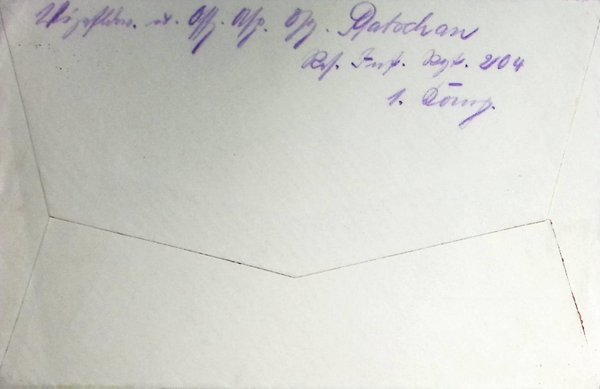 Vizefeldw. u. Offz. Asp. Ratochan
Res. Inf. Regt. 204
1. Komp.